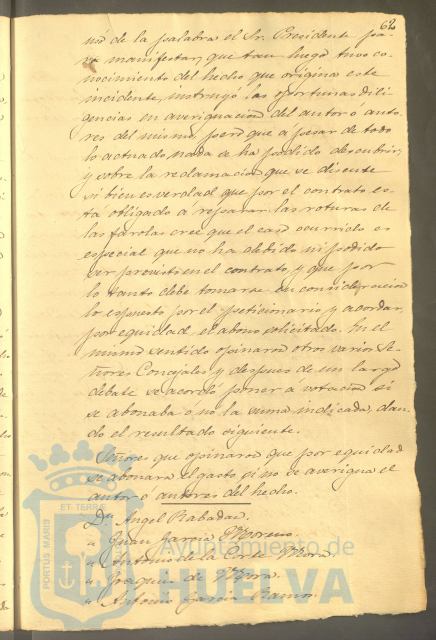 62
usó de la palabra el Sr. Presidente pa-
ra manifestar, que tan luego tuvo co-
nocimiento del hecho que origina este
incidente, instruyó las oportunas dili-
gencias en averiguacion del autor ó auto-
res del mismo, pero que a pesar de todo
lo actuado, nada se ha podido descubrir,
y sobre la reclamacion que se discute
si bien es verdad que por el contrato es-
ta obligado á reparar las roturas de
las farolas cree que el caso ocurrido es
especial que no ha debido ni podido
ser previsto en el contrato, y que por
lo tanto debe tomarse en consideracion
lo espuesto por el peticionario y acordar,
por equidad el abono solicitado. En el
mismo sentido opinaron otros varios Se-
ñores Concejales y despues de un largo
debate se acordó poner á votacion si
se abonaba o no la suma indicada, dan-
do el resultado siguiente.
Señores que opinaron que por equidad
se abonara el gasto si no se averigua el
autor o autores del hecho.
Dn Angel Rabadan.
" Juan Garcia Moreno.
" Antonio de la Corte Mora.
" Joaquin de Mora.
" Antonio Garcia Ramos.
PORTUS MARIS
ET TERRÆ
Ayuntamiento de
HUELVA